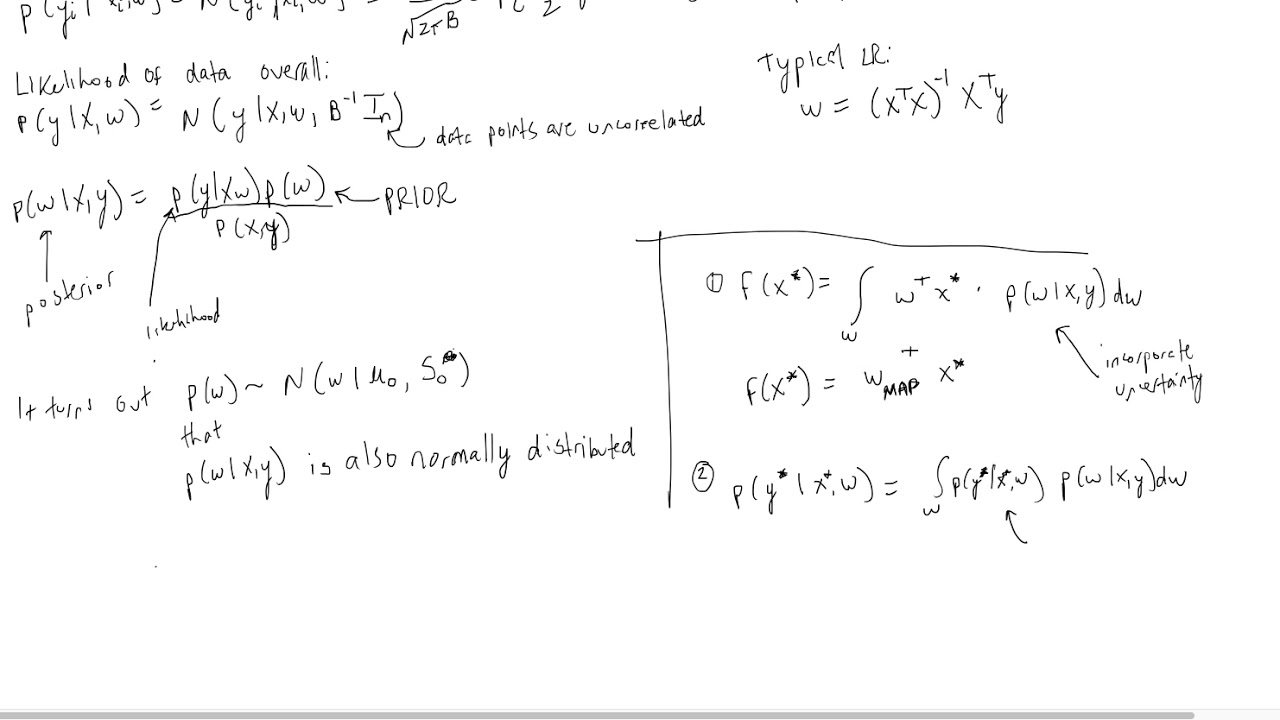 p(yᵢ | xᵢ, w) ~ N(yᵢ | xᵢ, w) = √2πB 2
Likelihood of data overall:
p(y|X, w) = N(y|X, w, B⁻¹ Iₙ)
data points are uncorrelated
Typical LR:
w = (XᵀX)⁻¹ Xᵀy
p(w|X,y) = p(y|Xw)p(w) / p(X,y)
PRIOR
posterior
likelihood
It turns out p(w) ~ N(w | μ₀, S₀)
that
p(w|X,y) is also normally distributed
① f(x*) = ∫ w wᵀx* · p(w|X,y) dw
incorporate
uncertainty
f(x*) = w_MAPᵀ x*
② p(y* | x*, w) = ∫ w p(y*|x*,w) p(w|X,y)dw